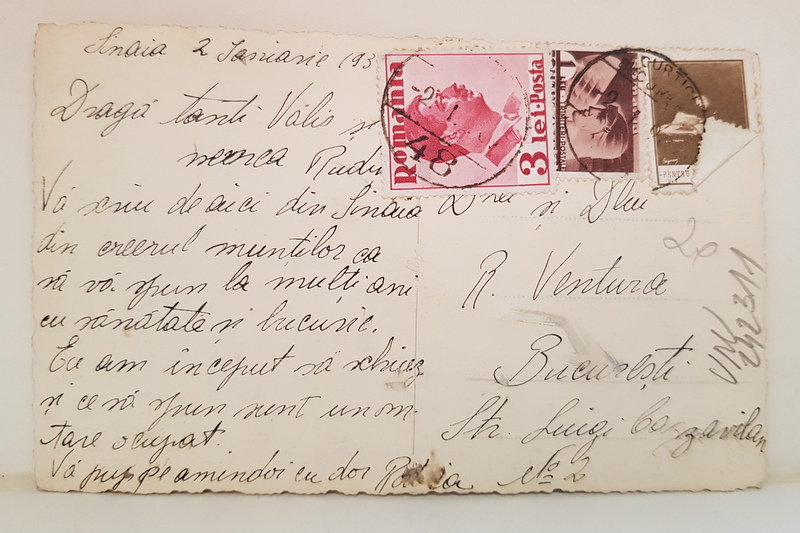 Sinaia 2 Ianuarie 193
Dragă tanti Vălis și
nenea Rudi
Vă scriu de aici din Sinaia
din creerul munților ca
să vă spun la mulți ani
cu sănătate și bucurie.
Eu am început să schiez
și ce să spun sunt un om
tare ocupat.
Vă pup pe amîndoi cu dor
România
3 lei·Posta
48
D-nei și D-lui
R. Ventura
București
Str. Luigi Cazzavilan
No 2
20
242311